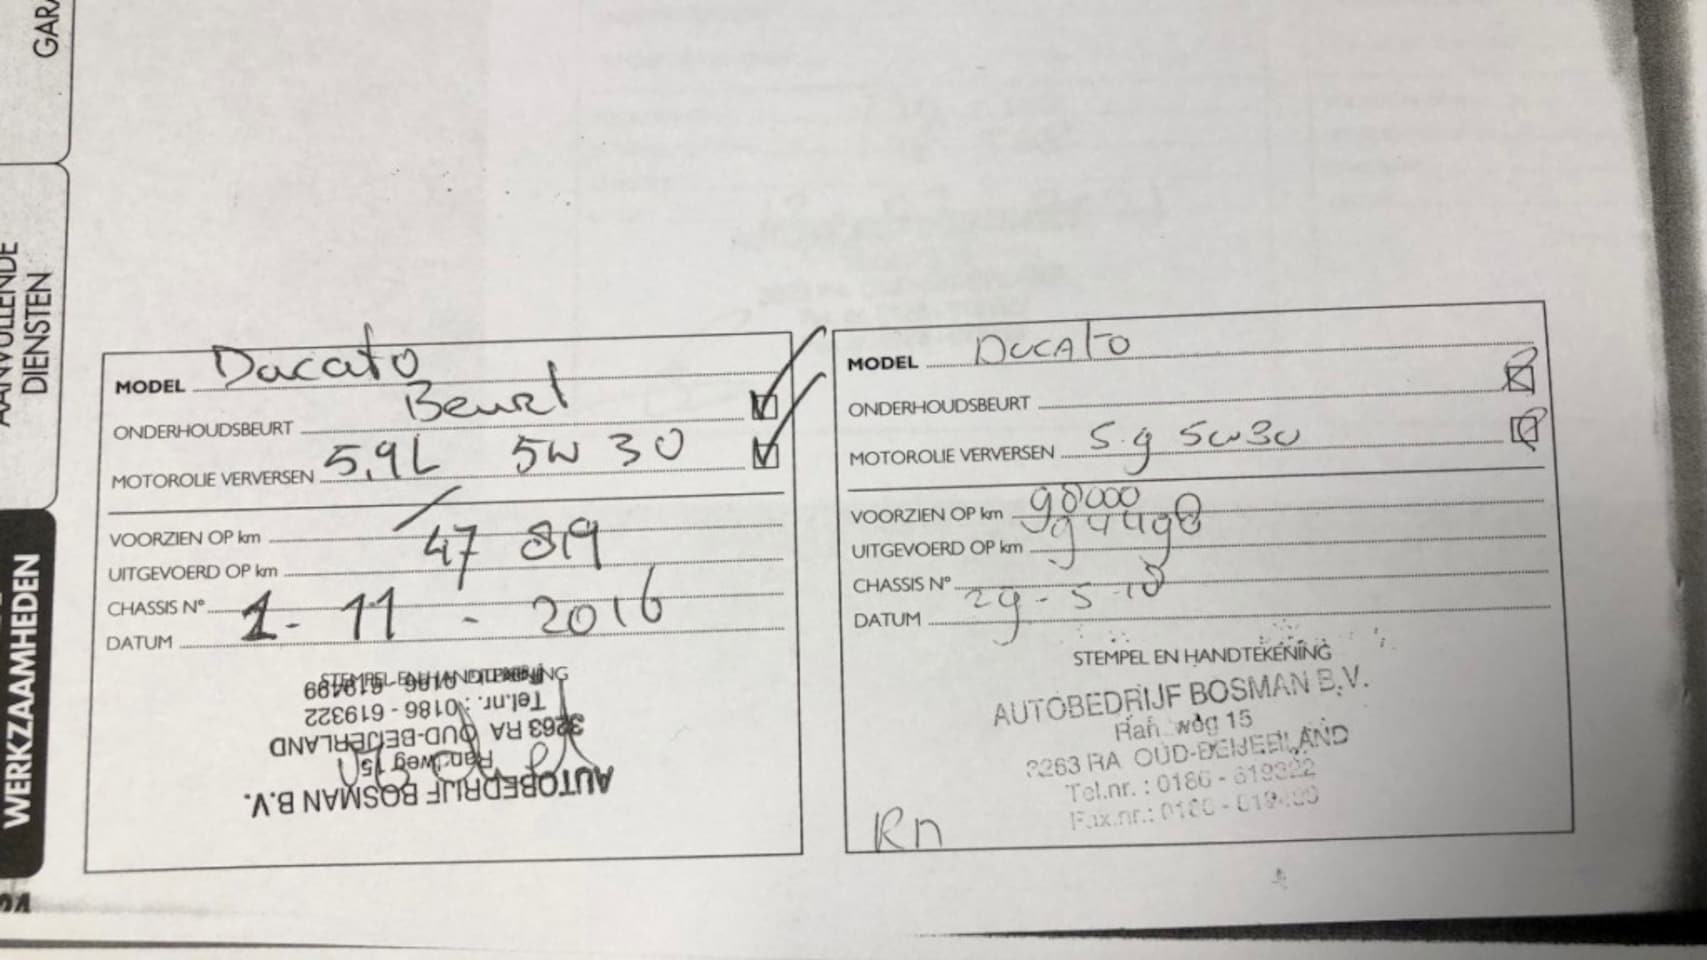 GAR
AANVULLENDE
DIENSTEN
WERKZAAMHEDEN
MODEL Ducato
ONDERHOUDSBEURT Beurt
MOTOROLIE VERVERSEN 5,9L 5W 30
VOORZIEN OP km
UITGEVOERD OP km 47 819
CHASSIS N°
DATUM 1-11-2016
STEMPEL EN HANDTEKENING
AUTOBEDRIJF BOSMAN B.V.
3263 RA OUD-BEIJERLAND
Tel.nr. : 0186 - 619322
0186 - 619499
MODEL DUCATO
ONDERHOUDSBEURT
MOTOROLIE VERVERSEN 5.9 5W30
VOORZIEN OP km 98000
UITGEVOERD OP km 94498
CHASSIS N°
DATUM 29-5-18
STEMPEL EN HANDTEKENING
AUTOBEDRIJF BOSMAN B.V.
15
3263 RA OUD-BEIJERLAND
Tel.nr. : 0186 - 619322
Fax.nr.:
Rn